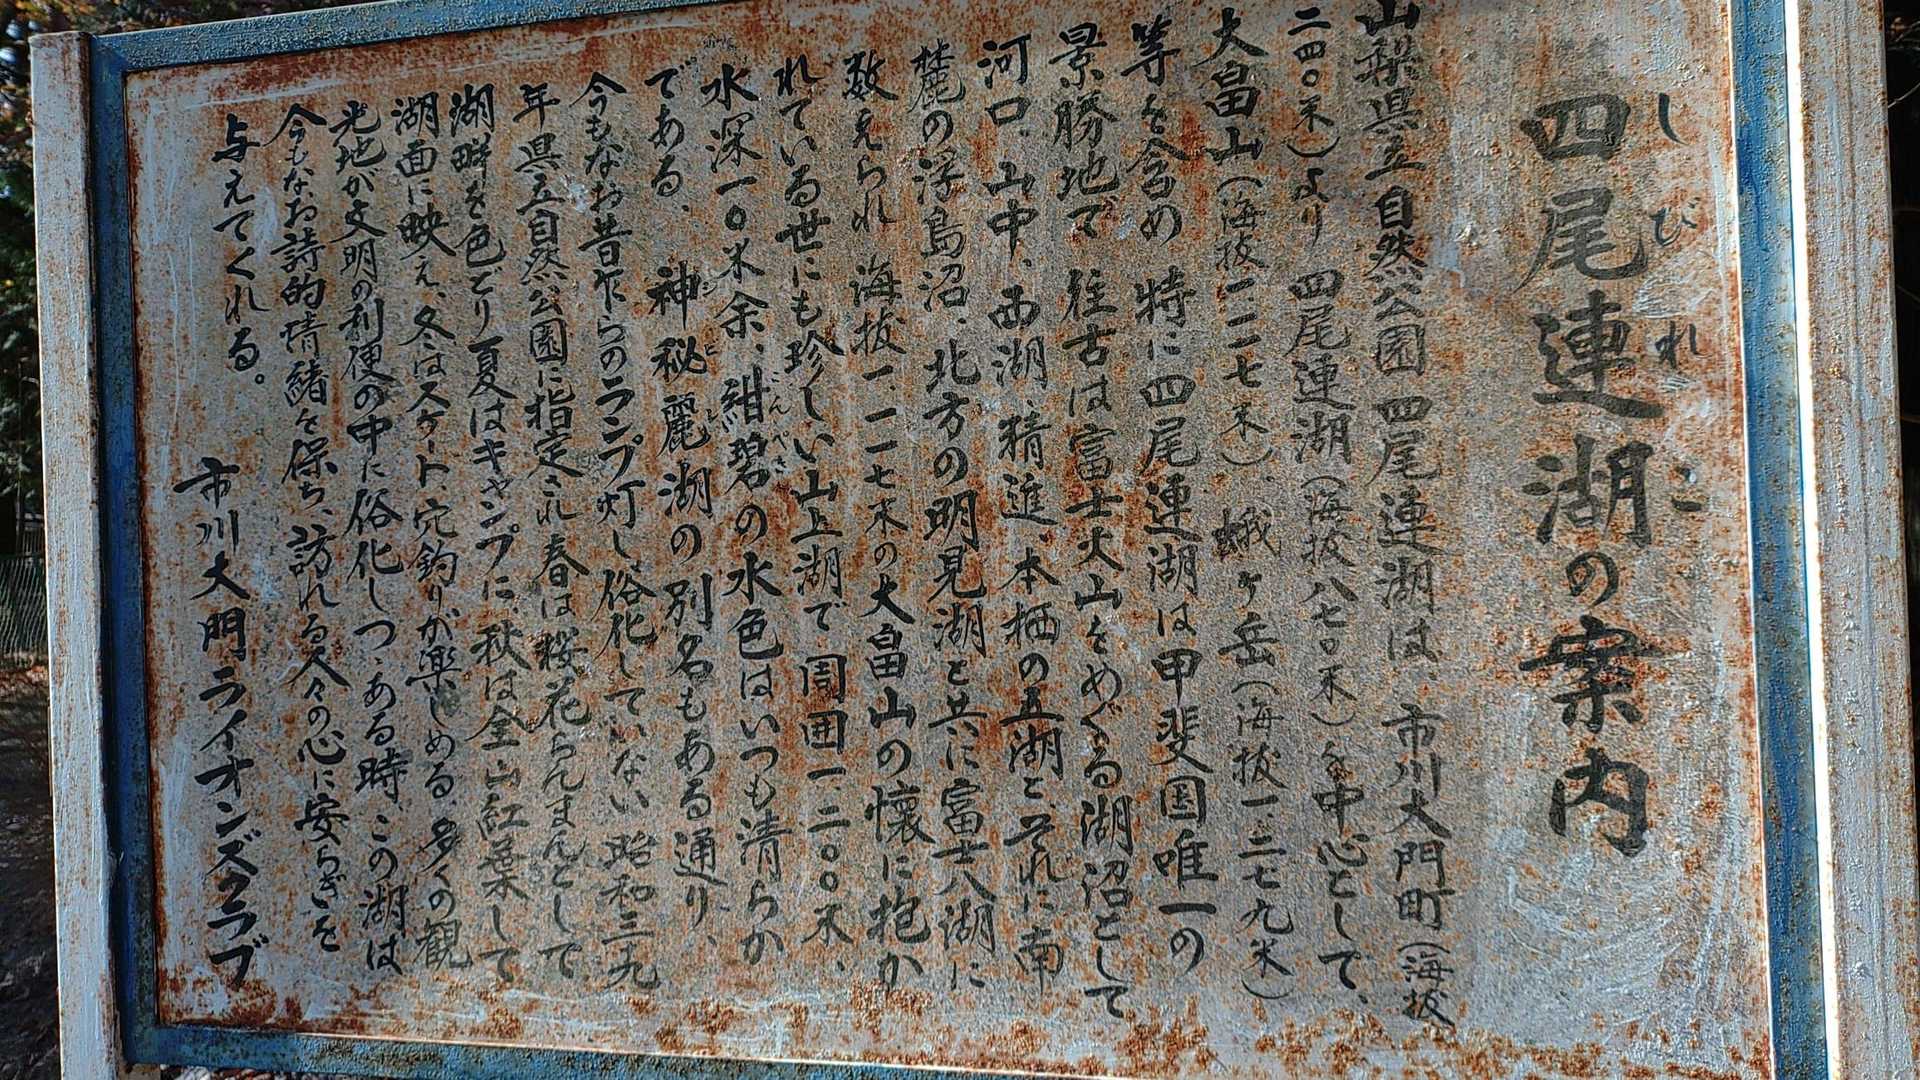 四尾連湖の案内
しびれこ
山梨県立自然公園四尾連湖は、市川大門町(海抜
二四〇米)より四尾連湖(海抜八七〇米)を中心として、
大畠山(海抜一一一七米)、蛾ヶ岳(海抜一、二七九米)
等を含め特に四尾連湖は甲斐国唯一の
景勝地で往古は富士火山をめぐる湖沼として
河口、山中、西湖、精進、本栖の五湖と、それに南
麓の浮島沼、北方の明見湖と共に富士八湖に
数えられ海抜一、一一七米の大畠山の懐に抱か
れている世にも珍しい山上湖で周囲一、二〇〇米、
水深一〇米余、紺碧の水色はいつも清らか
こんぺき
である、神秘麗湖の別名もある通り、
シンピレイ
今もなお昔乍らのランプ灯し俗化していない昭和三九
年県立自然公園に指定され春は桜花らんまんとして、
湖畔を色どり夏はキャンプに、秋は全山紅葉して
湖面に映え、冬はスケート、穴釣りが楽しめる、多くの観
光地が文明の利便の中に俗化しつゝある時、この湖は
今もなお詩的情緒を保ち、訪れる人々の心に安らぎを
与えてくれる。
市川大門ライオンズクラブ